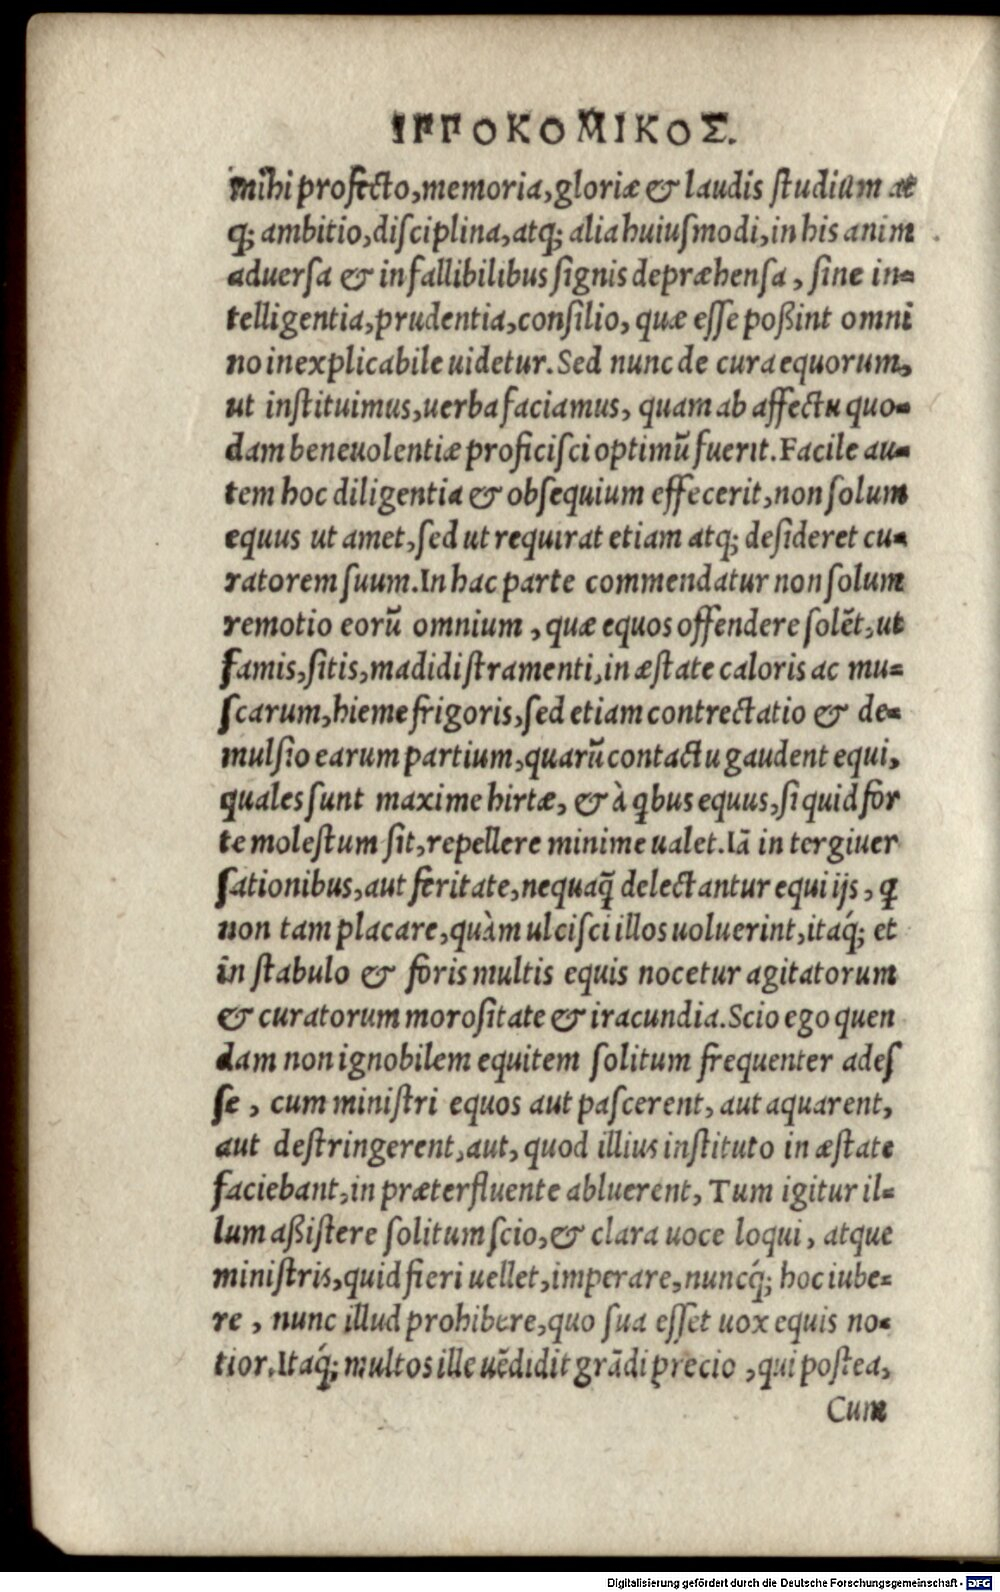 ΙΠΠΟΚΟΜΙΚΟΣ.
mihi profecto, memoria, gloriæ & laudis studium at
q; ambitio, disciplina, atq; alia huiusmodi, in his anim
aduersa & infallibilibus signis depræhensa, sine in-
telligentia, prudentia, consilio, quæ esse poßint omni
no inexplicabile uidetur. Sed nunc de cura equorum,
ut instituimus, uerba faciamus, quam ab affectu quo-
dam beneuolentiæ proficisci optimũ fuerit. Facile au-
tem hoc diligentia & obsequium effecerit, non solum
equus ut amet, sed ut requirat etiam atq; desideret cu-
ratorem suum. In hac parte commendatur non solum
remotio eorũ omnium, quæ equos offendere solẽt, ut
famis, sitis, madidi stramenti, in æstate caloris ac mu-
scarum, hieme frigoris, sed etiam contrectatio & de-
mulsio earum partium, quarũ contactu gaudent equi,
quales sunt maxime hirtæ, & à qbus equus, si quid for
te molestum sit, repellere minime ualet. Iã in tergiuer
sationibus, aut feritate, nequaq̃ delectantur equi ijs, q
non tam placare, quàm ulcisci illos uoluerint, itaq́; et
in stabulo & foris multis equis nocetur agitatorum
& curatorum morositate & iracundia. Scio ego quen
dam non ignobilem equitem solitum frequenter ades
se, cum ministri equos aut pascerent, aut aquarent,
aut destringerent, aut, quod illius instituto in æstate
faciebant, in præterfluente abluerent, Tum igitur il-
lum aßistere solitum scio, & clara uoce loqui, atque
ministris, quid fieri uellet, imperare, nuncq́; hoc iube-
re, nunc illud prohibere, quo sua esset uox equis no-
tior. Itaq́; multos ille uẽdidit grãdi precio, qui postea,
Cum
Digitalisierung gefördert durch die Deutsche Forschungsgemeinschaft - DFG